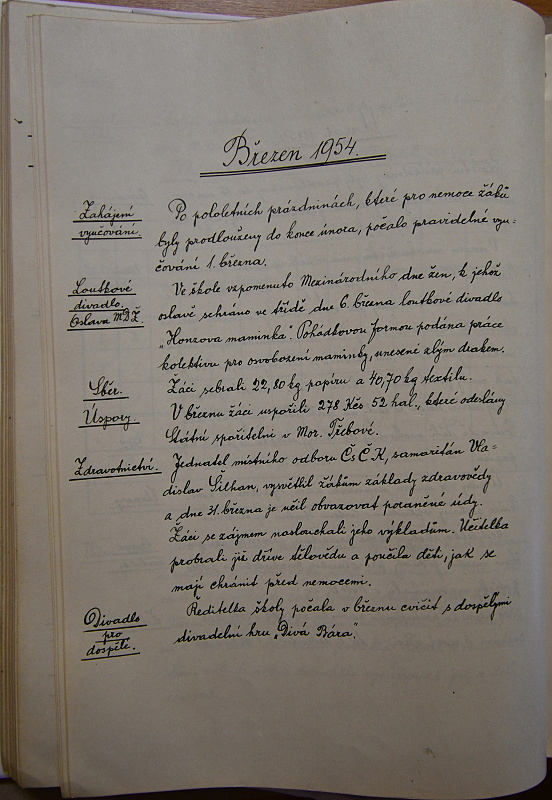 Březen 1954.
Zahájení
vyučování.
Po pololetních prázdninách, které pro nemoce žáků
byly prodlouženy do konce února, počalo pravidelné vyu-
čování 1. března.
Loutkové
divadlo.
Oslava MDŽ.
Ve škole vzpomenuto Mezinárodního dne žen, k jehož
oslavě sehráno ve třídě dne 6. března loutkové divadlo
„Honzova maminka". Pohádkovou formou podána práce
kolektivu pro osvobození maminky, unesené zlým drakem.
Sběr.
Žáci sebrali 22,80 kg papíru a 40,70 kg textilu.
Úspory.
V březnu žáci uspořili 278 Kčs 52 hal., které odeslány
Státní spořitelni v Mor. Třebové.
Zdravotnictví.
Jednatel místního odboru ČsČK, samaritán Vla-
dislav Silhan, vysvětlil žákům základy zdravovědy
a dne 31. března je učil obvazovat poraněné údy.
Žáci se zájmem naslouchali jeho výkladům. Učitelka
probrali již dříve tělovědu a poučila děti, jak se
mají chránit před nemocemi.
Divadlo
pro
dospělé.
Ředitelka školy počala v březnu cvičit s dospělými
divadelní hru „Divá Bára".